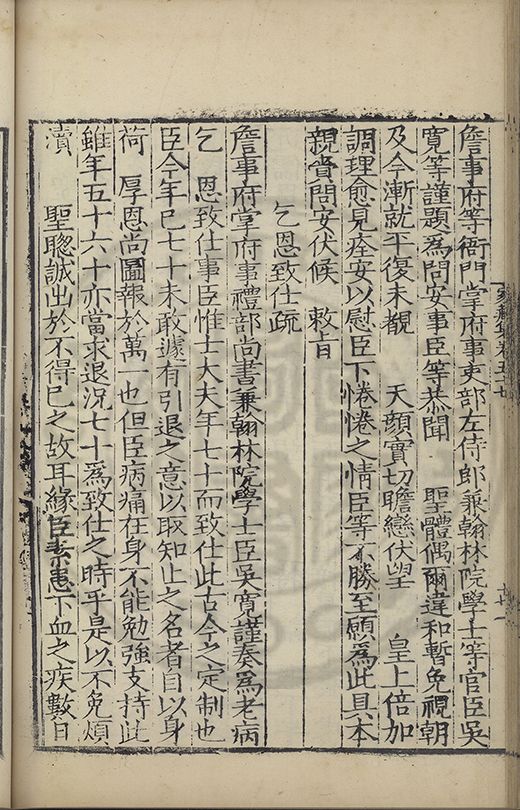 詹事府等衙門掌府事吏部左侍郎兼翰林院學士等官臣吳
寛等謹題為問安事臣等恭聞 聖體偶爾違和暫免視朝
及今漸就平復未覩 天顔實切瞻戀伏望 皇上倍加
調理愈見痊安以慰臣下惓惓之情臣等不勝至願為此具本
親賫問安伏候 敕旨
乞恩致仕疏
詹事府掌府事禮部尚書兼翰林院學士臣吳寛謹奏為老病
乞 恩致仕事臣惟士大夫年七十而致仕此古今之定制也
臣今年已七十未敢遽有引退之意以取知止之名者自以身
荷 厚恩尚圖報於萬一也但臣病痛在身不能勉強支持此
雖年五十六十亦當求退況七十爲致仕之時乎是以不免煩
瀆 聖聰誠出於不得已之故耳緣臣素患下血之疾數日
家藏集卷五十七